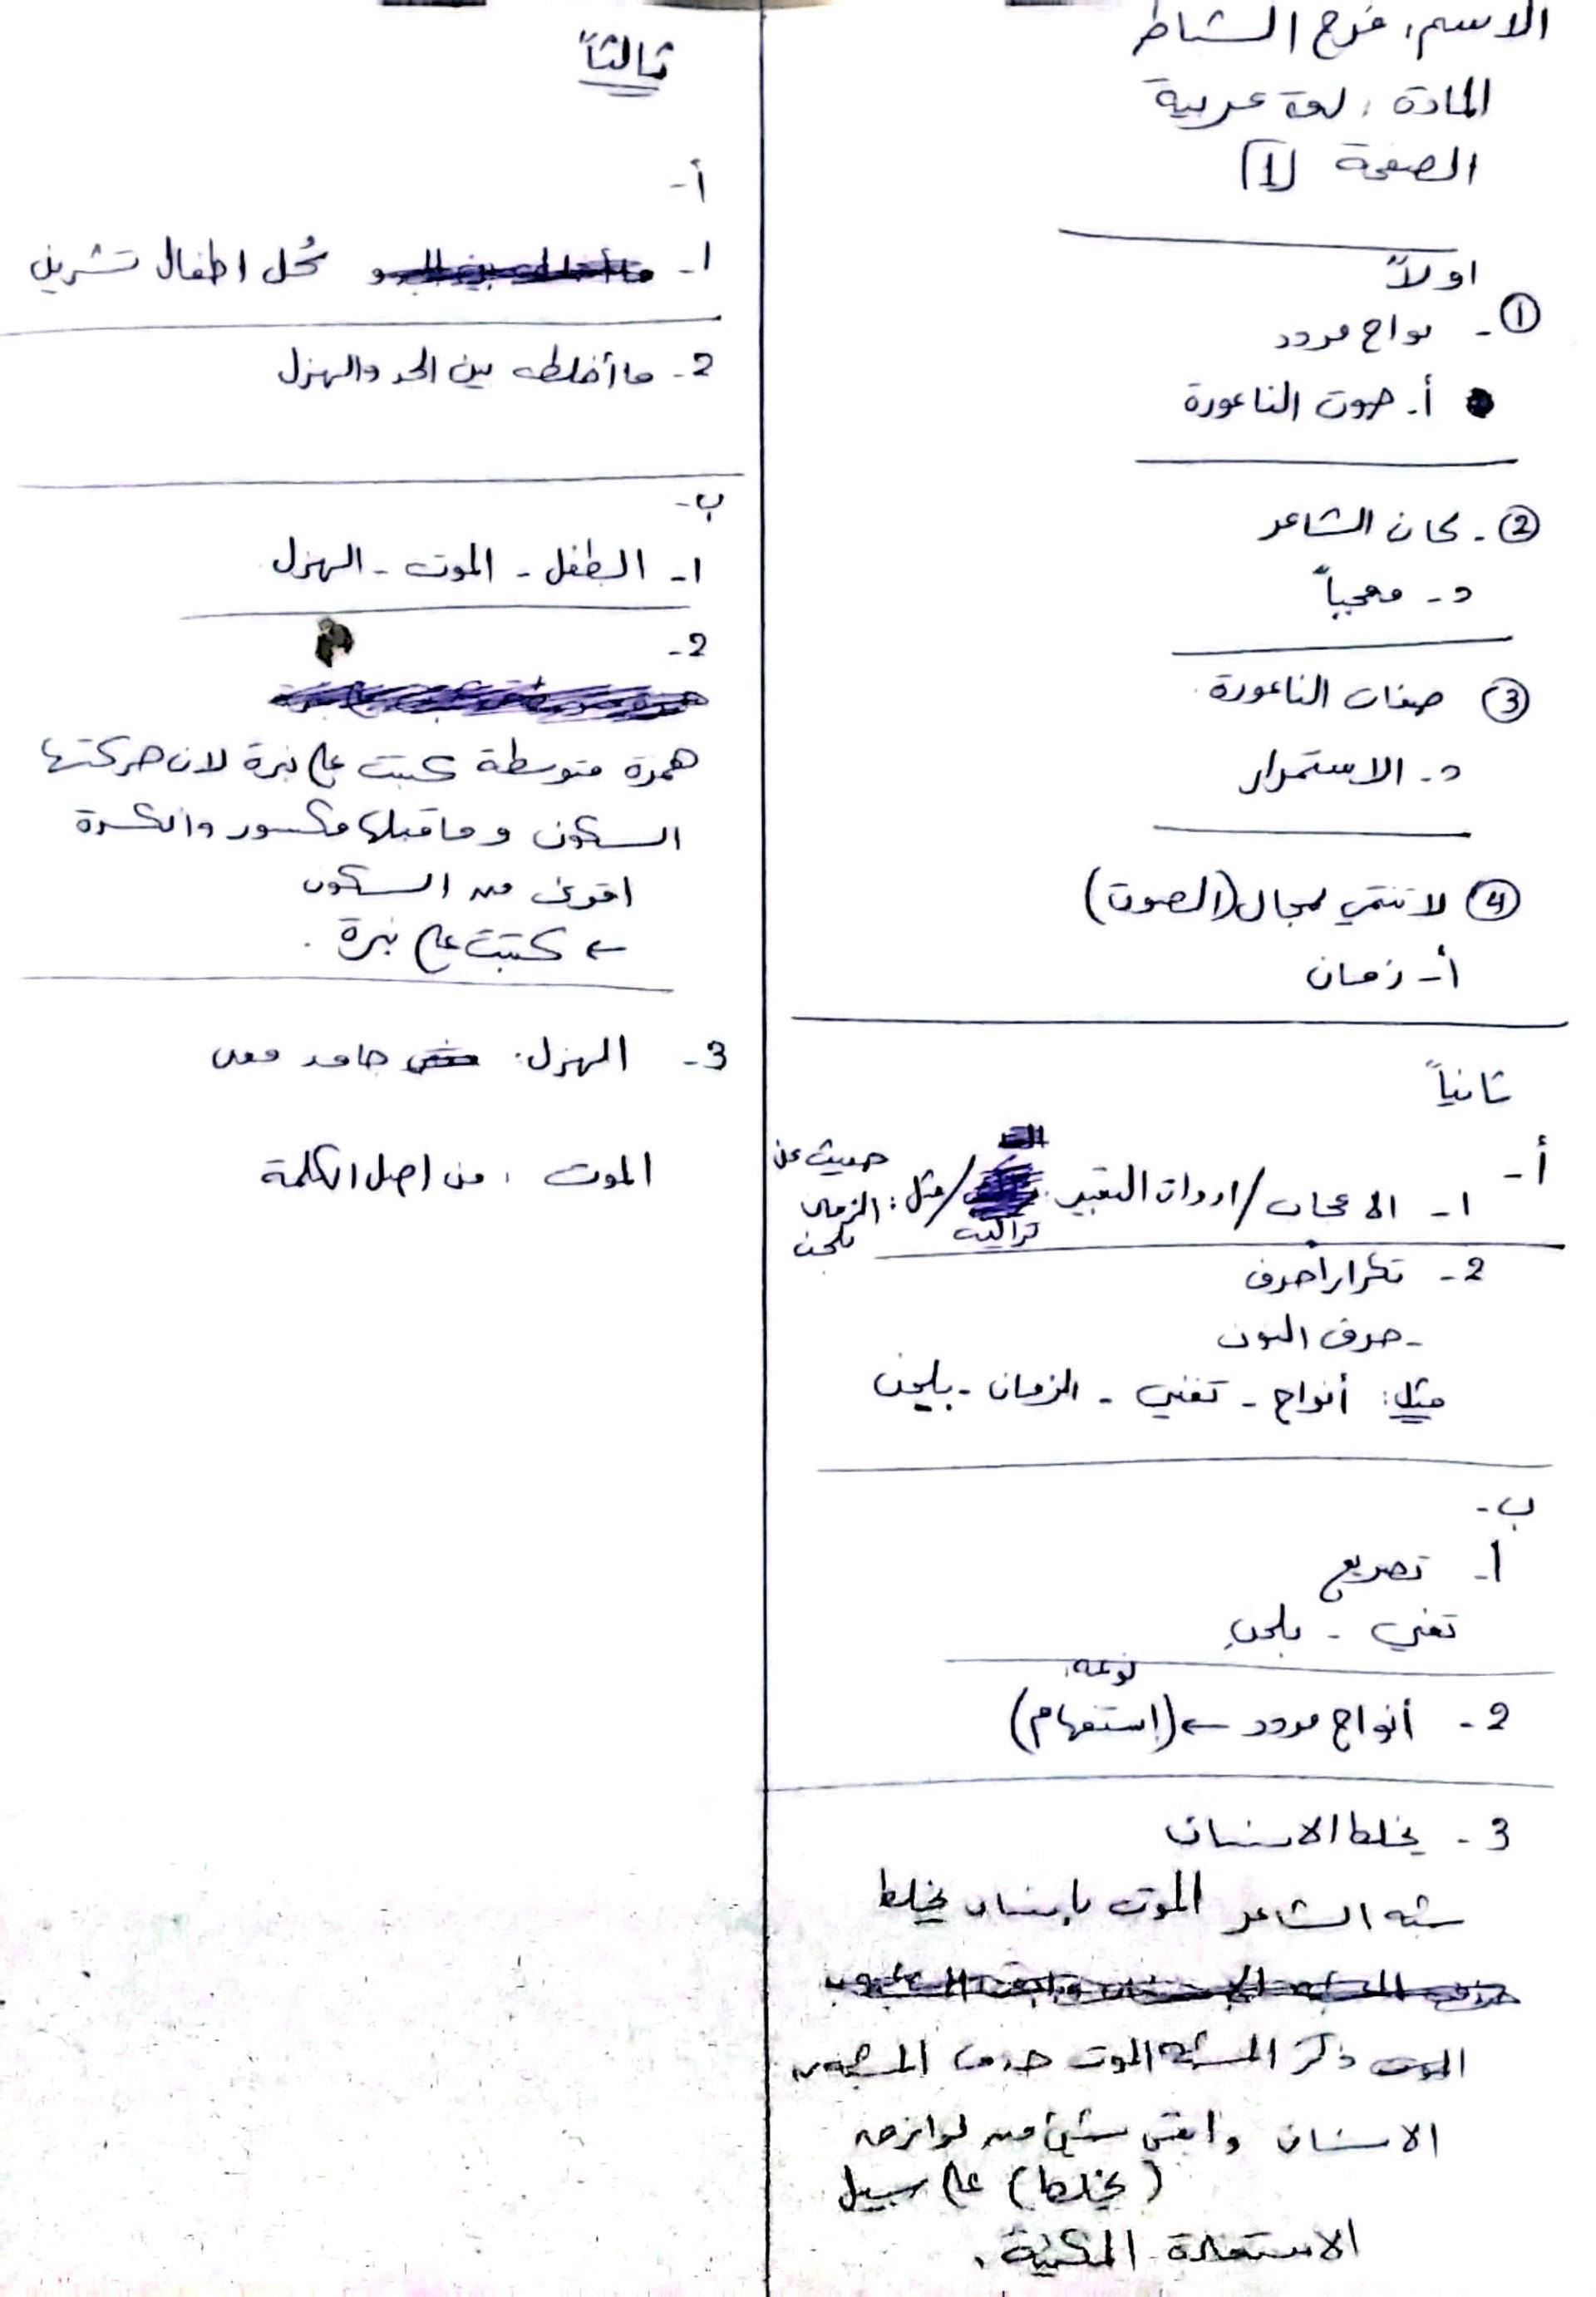 الاسم: فرح الشاطر
المادة: لغة عربية
الصفحة [1]
اولاً
① - نواح مردد
أ- صوت الناعورة
② - كان الشاعر
د- معجباً
③ صفات الناعورة
د- الاستمرار
④ لا تنتمي لمجال (الصوت)
أ- زمان
ثانياً
أ-
1- الاعجاب / ادوات التعبير: تراكيب / مثل: حديث عن الزمان بلحن
2- تكرار احرف
- حرف النون
مثل: أنواح - تغني - الزمان - بلحن
ب-
1- تصريع
تغني - بلحنِ
2- أنواح مردد ← نوعه: (استفهام)
3- يخلط الانسان
شبه الشاعر الموت بإنسان يخلط
الموت ذكر المشبه الموت حذف المشبه به
الانسان وابقى شيئ من لوازمه
(يخلط) على سبيل
الاستعارة المكنية.
ثالثاً
أ-
1- كُحل اطفال تشرين
2- ما أخلطه بين الجد والهزل
ب-
1- الطفل - الموت - الهزل
2-
همزة متوسطة كتبت على نبرة لان حركتها
السكون وما قبلها مكسور والكسرة
اقوى من السكون
← كتبت على نبرة.
3- الهزل: جامد معنى
الموت: من اصل الكلمة